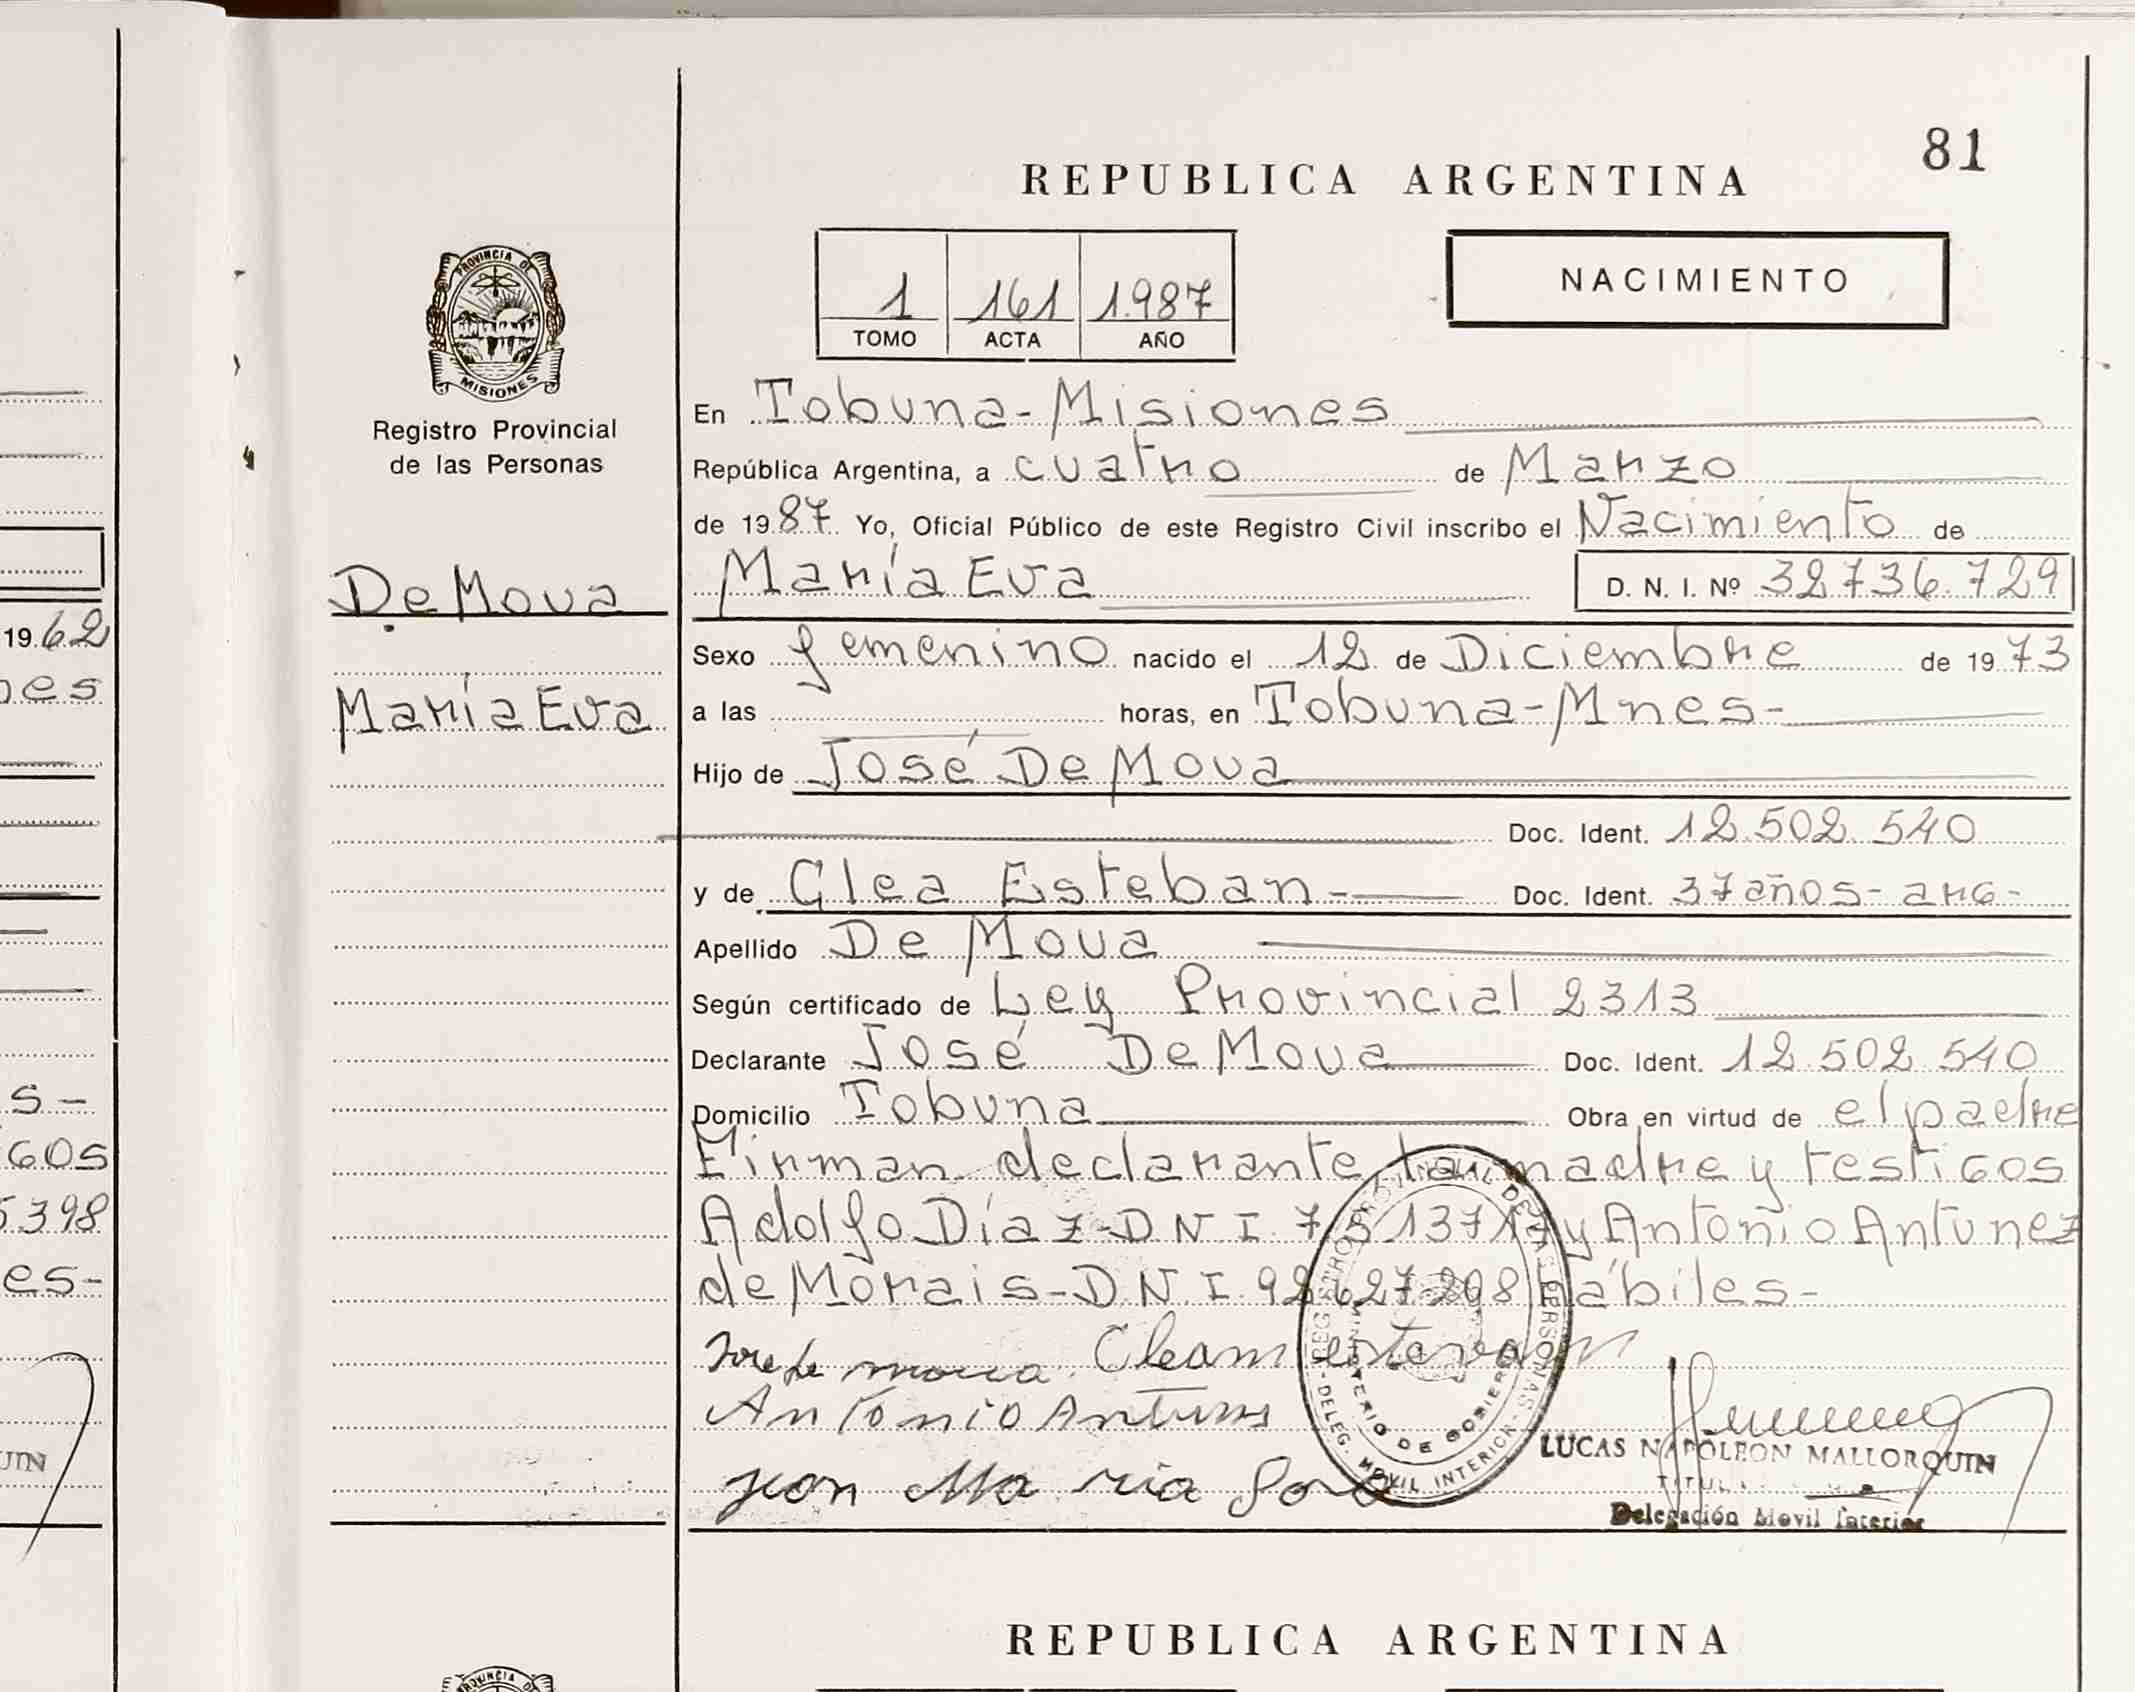 81
REPUBLICA ARGENTINA
1 161 1.987
TOMO ACTA AÑO
NACIMIENTO
PROVINCIA DE
MISIONES
Registro Provincial
de las Personas
De Mova
María Eva
En Tobuna-Misiones
República Argentina, a cuatro de Marzo
de 1987 Yo, Oficial Público de este Registro Civil inscribo el Nacimiento de
María Eva D. N. I. Nº 32736.729
Sexo femenino nacido el 12 de Diciembre de 1973
a las horas, en Tobuna-Mnes-
Hijo de José De Mova
Doc. Ident. 12.502.540
y de Clea Esteban- Doc. Ident. 37años-arg-
Apellido De Mova
Según certificado de Ley Provincial 2313
Declarante José De Mova Doc. Ident. 12.502.540
Domicilio Tobuna Obra en virtud de el padre
Firman declarante la madre y testigos
Adolfo Díaz-DNI. y Antonio Antunez
de Morais-D.N.I. hábiles-
Antonio
LUCAS NAPOLEON MALLORQUIN
TITULAR
Delegación Movil Interior
REGISTRO PROVINCIAL DE LAS PERSONAS
MINISTERIO DE GOBIERNO
DELEG. MOVIL INTERIOR
1962
es
s-
gos
5398
es-
UIN
REPUBLICA ARGENTINA
PROVINCIA DE